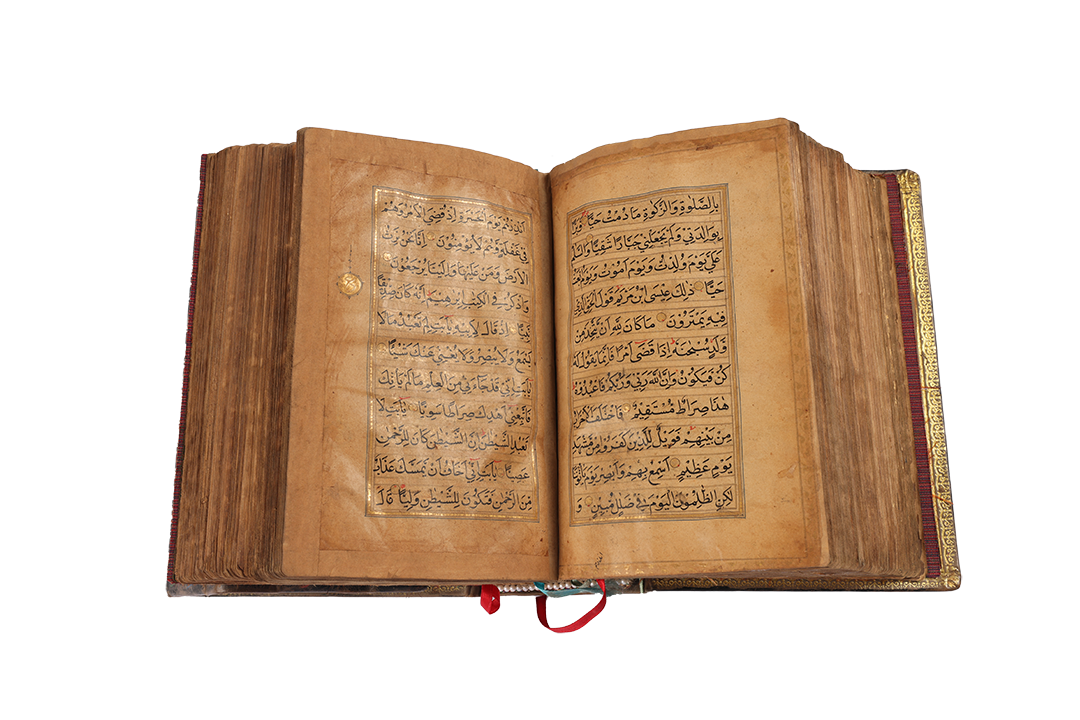 بِالصَّلٰوةِ وَالزَّكٰوةِ مَا دُمْتُ حَيًّا وَبَرًّا
بِوَالِدَتِي وَلَمْ يَجْعَلْنِي جَبَّارًا شَقِيًّا وَالسَّلٰمُ
عَلَيَّ يَوْمَ وُلِدْتُ وَيَوْمَ اَمُوتُ وَيَوْمَ اُبْعَثُ
حَيًّا ذٰلِكَ عِيسَى ابْنُ مَرْيَمَ قَوْلَ الْحَقِّ الَّذِي
فِيهِ يَمْتَرُونَ مَا كَانَ لِلّٰهِ اَنْ يَتَّخِذَ مِنْ
وَلَدٍ سُبْحٰنَهُ اِذَا قَضٰى اَمْرًا فَاِنَّمَا يَقُولُ لَهُ
كُنْ فَيَكُونُ وَاِنَّ اللّٰهَ رَبِّي وَرَبُّكُمْ فَاعْبُدُوهُ
هٰذَا صِرَاطٌ مُسْتَقِيمٌ فَاخْتَلَفَ الْاَحْزَابُ
مِنْ بَيْنِهِمْ فَوَيْلٌ لِلَّذِينَ كَفَرُوا مِنْ مَشْهَدِ
يَوْمٍ عَظِيمٍ اَسْمِعْ بِهِمْ وَاَبْصِرْ يَوْمَ يَاْتُونَنَا
لٰكِنِ الظّٰلِمُونَ الْيَوْمَ فِي ضَلٰلٍ مُبِينٍ وَ
اَنْذِرْهُمْ يَوْمَ الْحَسْرَةِ اِذْ قُضِيَ الْاَمْرُ وَهُمْ
فِي غَفْلَةٍ وَهُمْ لَا يُؤْمِنُونَ اِنَّا نَحْنُ نَرِثُ
الْاَرْضَ وَمَنْ عَلَيْهَا وَاِلَيْنَا يُرْجَعُونَ
وَاذْكُرْ فِي الْكِتٰبِ اِبْرٰهِيمَ اِنَّهُ كَانَ صِدِّيقًا
نَبِيًّا اِذْ قَالَ لِاَبِيهِ يٰاَبَتِ لِمَ تَعْبُدُ مَا لَا
يَسْمَعُ وَلَا يُبْصِرُ وَلَا يُغْنِي عَنْكَ شَيْئًا
يٰاَبَتِ اِنِّي قَدْ جَاءَنِي مِنَ الْعِلْمِ مَا لَمْ يَاْتِكَ
فَاتَّبِعْنِي اَهْدِكَ صِرَاطًا سَوِيًّا يٰاَبَتِ لَا
تَعْبُدِ الشَّيْطٰنَ اِنَّ الشَّيْطٰنَ كَانَ لِلرَّحْمٰنِ
عَصِيًّا يٰاَبَتِ اِنِّي اَخَافُ اَنْ يَمَسَّكَ عَذَابٌ
مِنَ الرَّحْمٰنِ فَتَكُونَ لِلشَّيْطٰنِ وَلِيًّا قَالَ